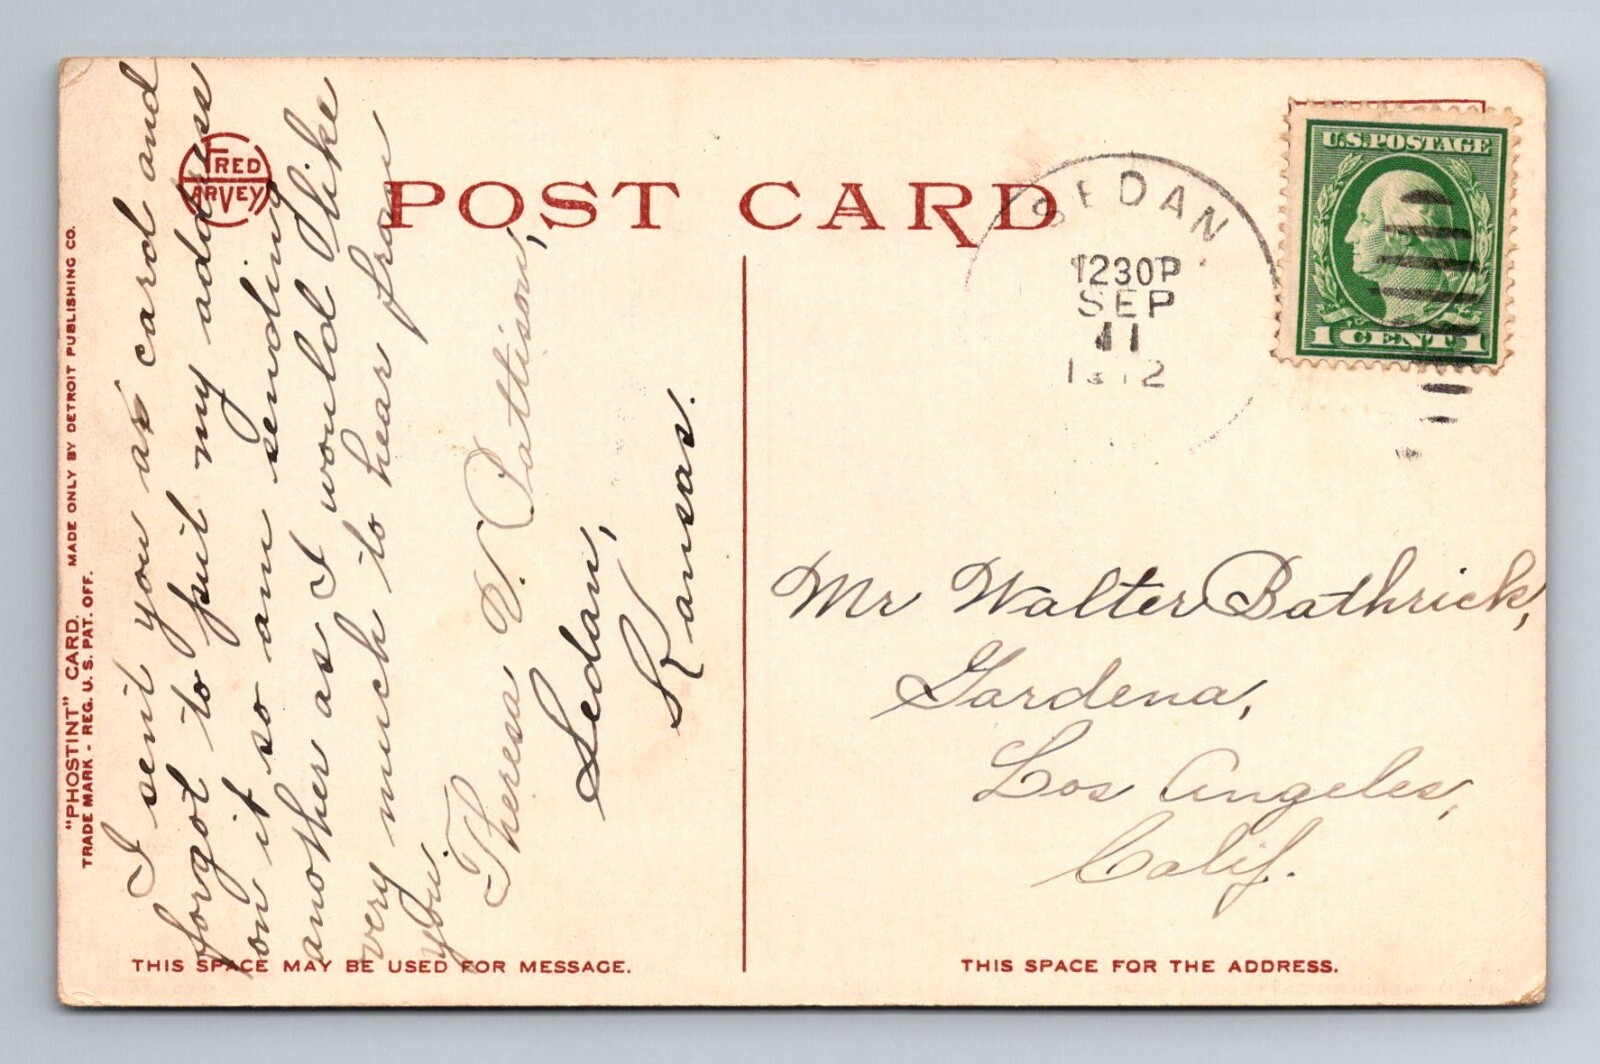 "PHOSTINT" CARD.
TRADE MARK - REG. U. S. PAT. OFF.
MADE ONLY BY DETROIT PUBLISHING CO.
FRED
HARVEY
POST CARD
I sent you a card and
forgot to put my address
on it so am sending
another as I would like
very much to hear from
you.
Theresa V. Pattison,
Sedan,
Kansas.
THIS SPACE MAY BE USED FOR MESSAGE.
SEDAN
1230P
SEP
11
1912
U.S. POSTAGE
1 CENT 1
Mr Walter Bathrick,
Gardena,
Los Angeles,
Calif.
THIS SPACE FOR THE ADDRESS.